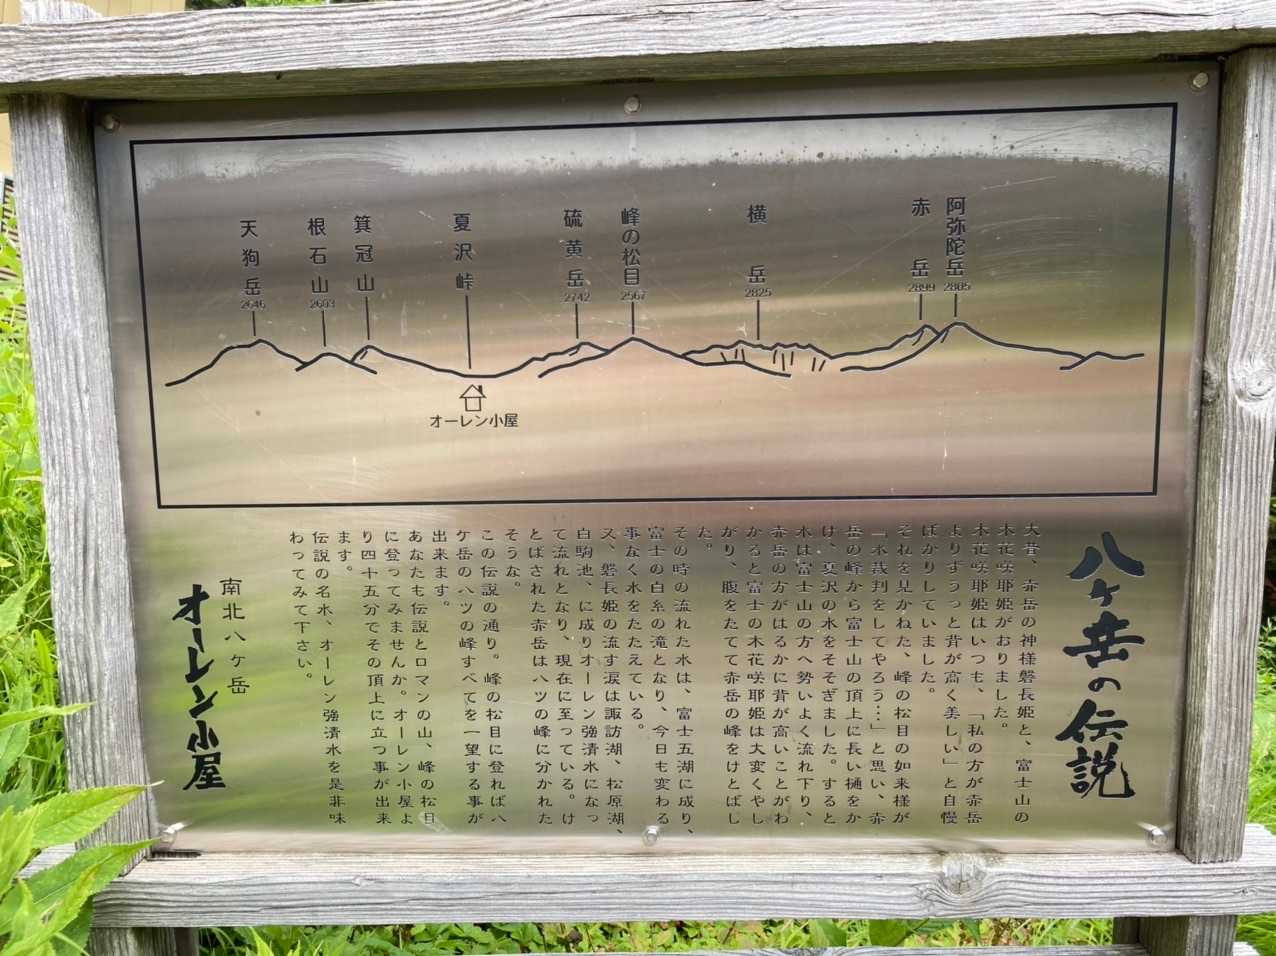 阿弥陀岳
2805
赤岳
2899
横岳
2825
峰の松目
2567
硫黄岳
2742
夏沢峠
箕冠山
根石山
2603
天狗岳
2646
オーレン小屋
八ヶ岳の伝説
大昔、赤岳の神様磐長姫と、富士山の
木花咲耶姫がおりました。
木花咲耶姫はいつも、「私の方が赤岳
よりずうっと背が高く美しい」と自慢
ばかりしていました。
それを見かねた、峰の松目の如来様が
「水裁判をしてやろう…」と思い、赤
岳の峰から富士山の頂上に長い樋をか
け、夏沢の水をそそぎました。すると
水は富士山の方へ勢いよく流れ下り、
赤岳の方がはるかに背が高いことがわ
かると富士の木花咲耶姫は大変くやし
がり、腹をたてて赤岳の峰をけとばし
た。
その時の流れた水は、富士五湖に成り、
富士の白糸の滝となり、今日も変わる
事なく水をたたえている。
又、磐長姫の流す涙は諏訪湖、松原湖、
白駒池、に成りオーレン強清水になっ
て流れとなり、現在に至っている。け
とばされた赤岳は八ツの峰に分かれた
そうな。
この伝説の通り。峰の松目に登れば八
ケ岳の八ツの峰すべてを一望する事が
出来ます。
あなたも伝説とロマンの山、峰の松目
に登ってみませんか。オーレン小屋よ
り四十五分でその頂上に立つ事が出来
ます。
伝説の名水、オーレン強清水を是非味
わってみて下さい。
南北八ケ岳
オーレン小屋